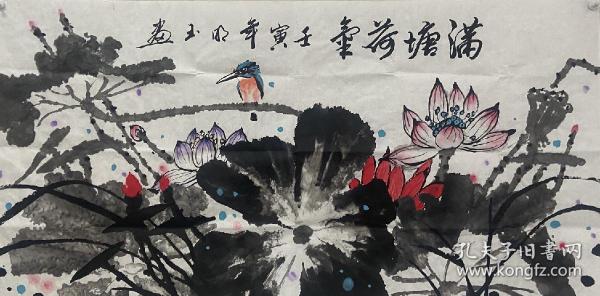 满塘荷气 壬寅年明玉画
孔夫子旧书网
www.kongfz.com